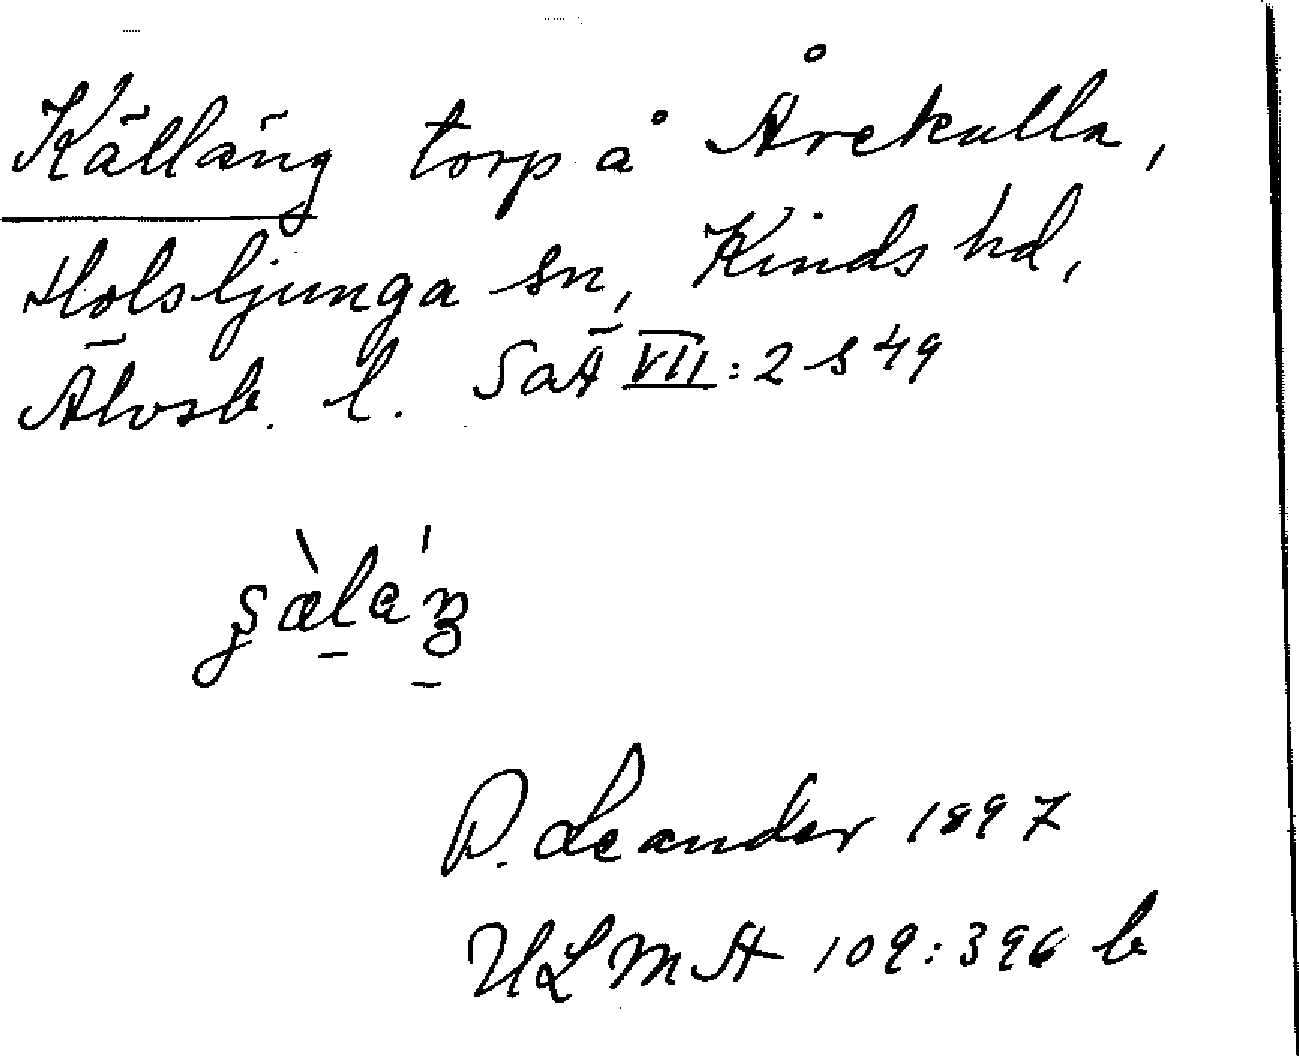 Källäng torp å Årekulla,
Holsljunga sn, Kinds hd,
Älvsb. l. SOÄ VII:2 s 49
P. Leander 1897
ULMA 109:396 b